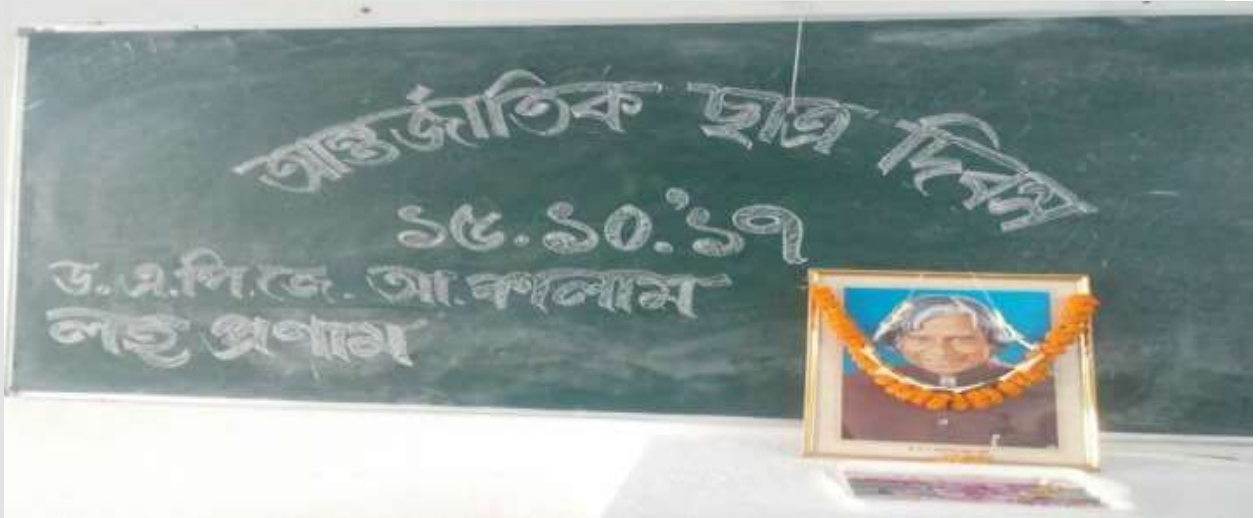 আন্তর্জাতিক ছাত্র দিবস
১৫.১০.'১৭
ড. এ.পি.জে. আ. কালাম
লহ প্রণাম